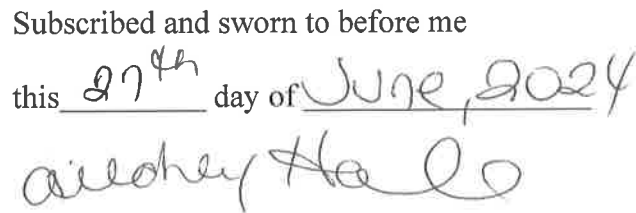 Subscribed and sworn to before me
this 27th day of June, 2024